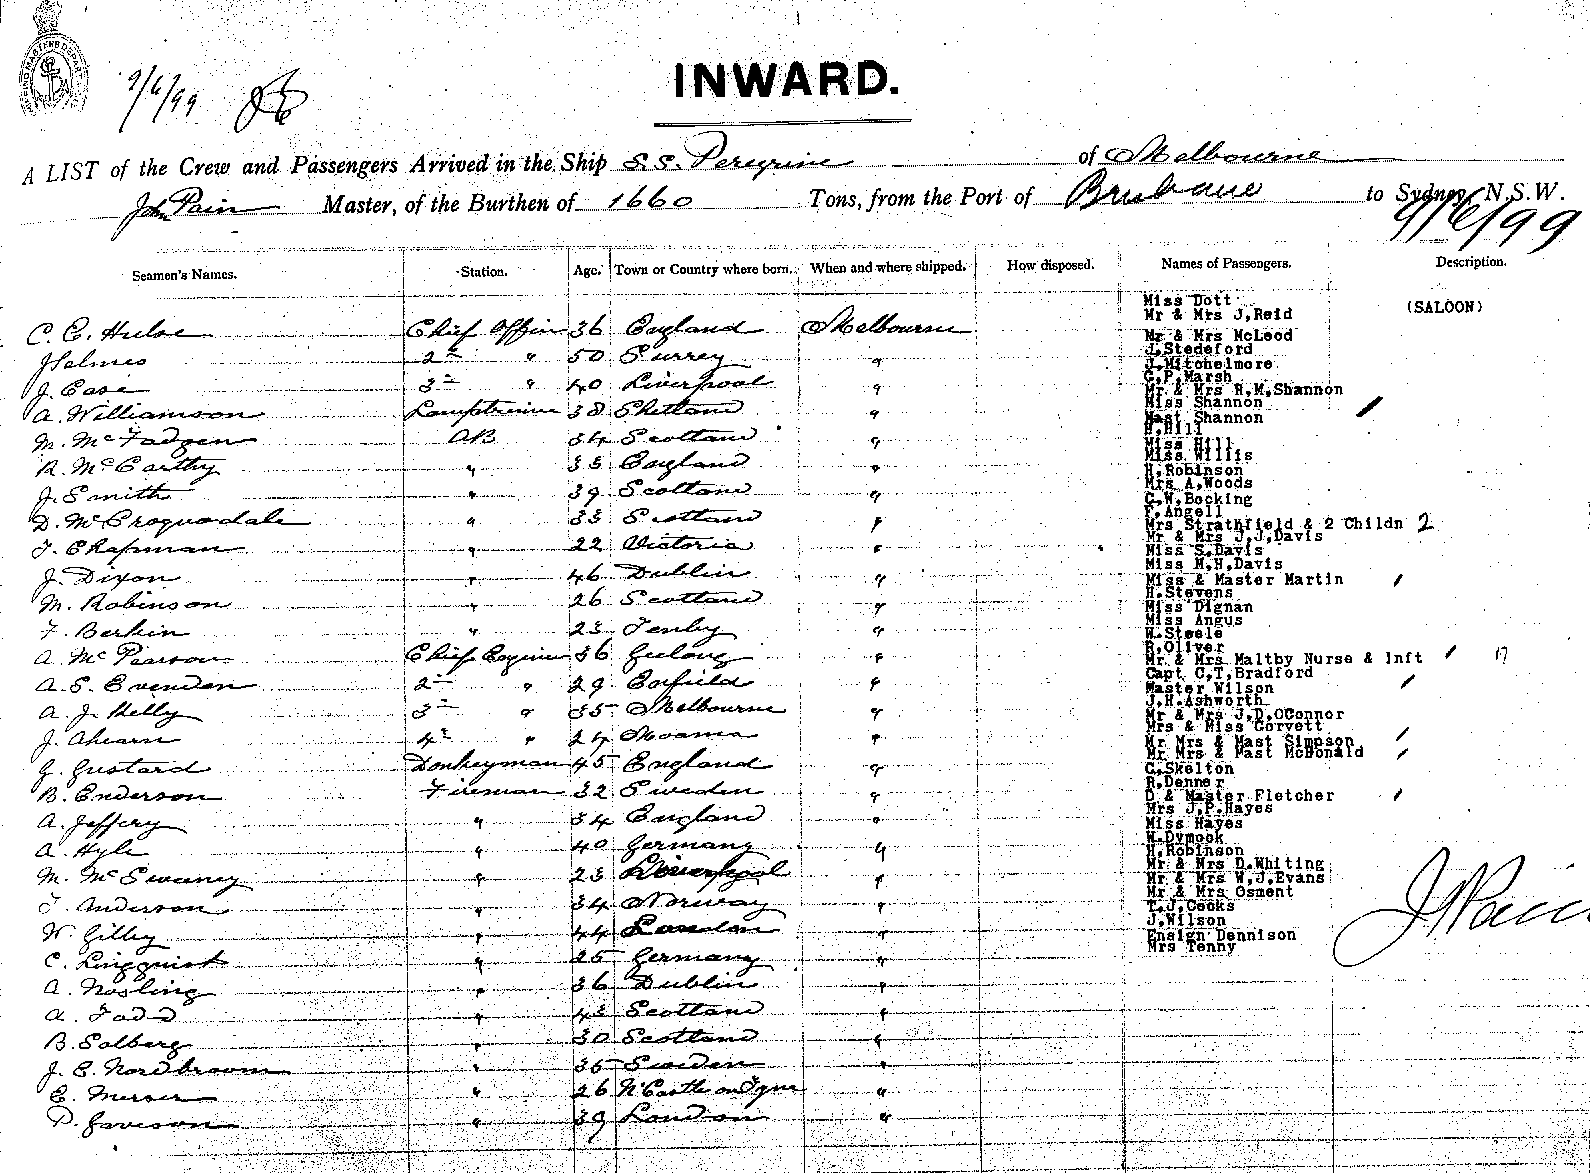 9/6/99
INWARD.
A LIST of the Crew and Passengers Arrived in the Ship S.S. Peregrine of Melbourne
Jn Pain Master, of the Burthen of 1660 Tons, from the Port of Brisbane to Sydney, N.S.W.
9/6/99
Seamen's Names. Station. Age. Town or Country where born. When and where shipped. How disposed. Names of Passengers. Description.
Miss Dott (SALOON)
Mr & Mrs J,Reid
C. C. Chief Officer 36 England Melbourne
Mr & Mrs McLeod
J.Stedeford
2nd " 50 Surrey "
J.Mitchelmore
G.P.Marsh
J. Case 3rd " 40 Liverpool "
Mr & Mrs R,M,Shannon
Miss Shannon
A. Williamson Lamptrimr 38 Shetland "
Mast Shannon
H.Hill
M. McFadgen AB 34 Scotland "
Miss Hill
Miss Willis
R. McCarthy " 35 England "
H.Robinson
Mrs A,Woods
J. Smith " 39 Scotland "
C,W,Bocking
F.Angell
D. McCroquodale " 33 Scotland "
Mrs Strathfield & 2 Childn 2
Mr & Mrs J,J,Davis
T. Chapman " 22 Victoria "
Miss S.Davis
Miss M,H,Davis
J. Dixon " 46 Dublin "
Miss & Master Martin
H.Stevens
M. Robinson " 26 Scotland "
Miss Dignan
Miss Angus
F. Berkin " 23 Tenby "
W.Steele
R.Oliver
A. McPearson Chief Engineer 36 Geelong "
Mr & Mrs Maltby Nurse & Inft
Capt C,T,Bradford
A. S. Evenden 2nd " 29 "
Master Wilson
J.H.Ashworth
A. J. Kelly 3rd " 35 Melbourne "
Mr & Mrs J.D.OConnor
Mrs & Miss Corvett
J. Ahearn 4th " 24 Moama "
Mr Mrs & Mast Simpson
Mr Mrs & Mast McDonald
G. Gustard Donkeyman 45 England "
C.Skelton
R.Denner
B. Enderson Fireman 32 Sweden "
D & Master Fletcher
Mrs J,P.Hayes
A. Jeffery " 34 England "
Miss Hayes
W.Dymock
A. Hyle " 40 Germany "
H.Robinson
Mr & Mrs D.Whiting
M. McSwaney " 23 Liverpool "
Mr & Mrs W,J.Evans
Mr & Mrs Osment
T. Anderson " 34 Norway "
T.J.Cooks
J.Wilson
W. Gilby " 44 London "
Ensign Dennison
Mrs Tenny
C. Linqquist " 25 Germany "
A. Nosling " 36 Dublin "
A. Todd " 43 Scotland "
B. Solberg " 30 Scotland "
J. E. Nordbroom " 35 Sweden "
E. Mercer " 26 N'Castle on Tyne "
D. " 39 London "
J Pain